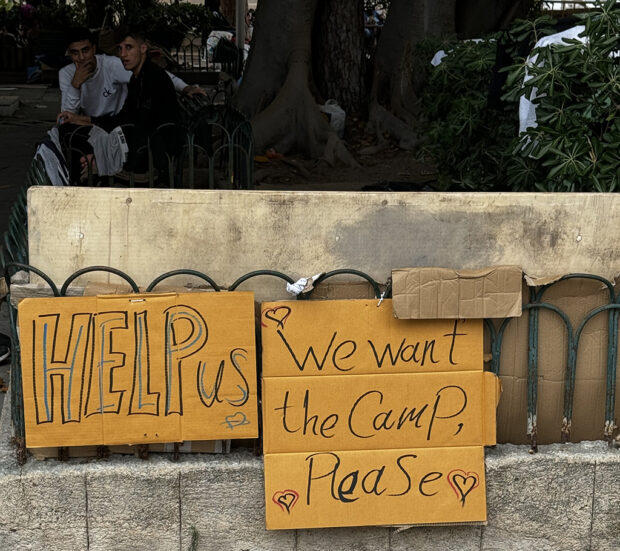 HELP us
We want
the Camp,
Please